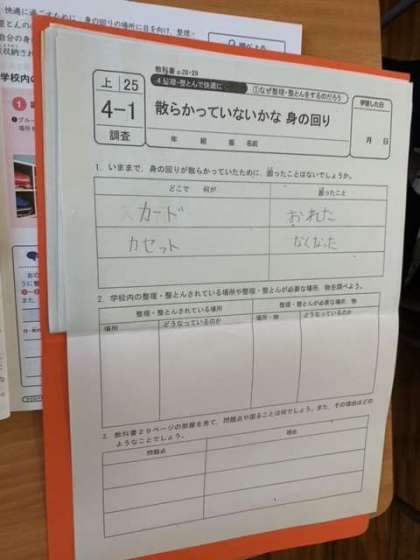 教科書 p.28-29
上 25
4 整理・整とんで快適に
①なぜ整理・整とんをするのだろう
学習した日
4-1
調査
散らかっていないかな 身の回り
年 組 番 名前
月 日
1. いままで、身の回りが散らかっていたために、困ったことはないでしょうか。
どこで 何が
困ったこと
カード
おれた
カセット
なくなった
2. 学校内の整理・整とんされている場所や整理・整とんが必要な場所、物を調べよう。
整理・整とんされている場所
整理・整とんが必要な場所、物
場所
どうなっているのか
場所・物
どうなっているのか
3. 教科書29ページの部屋を見て、問題点や困ることは何でしょう。また、その理由はどの
ようなことでしょう。
問題点
理由
学校内の